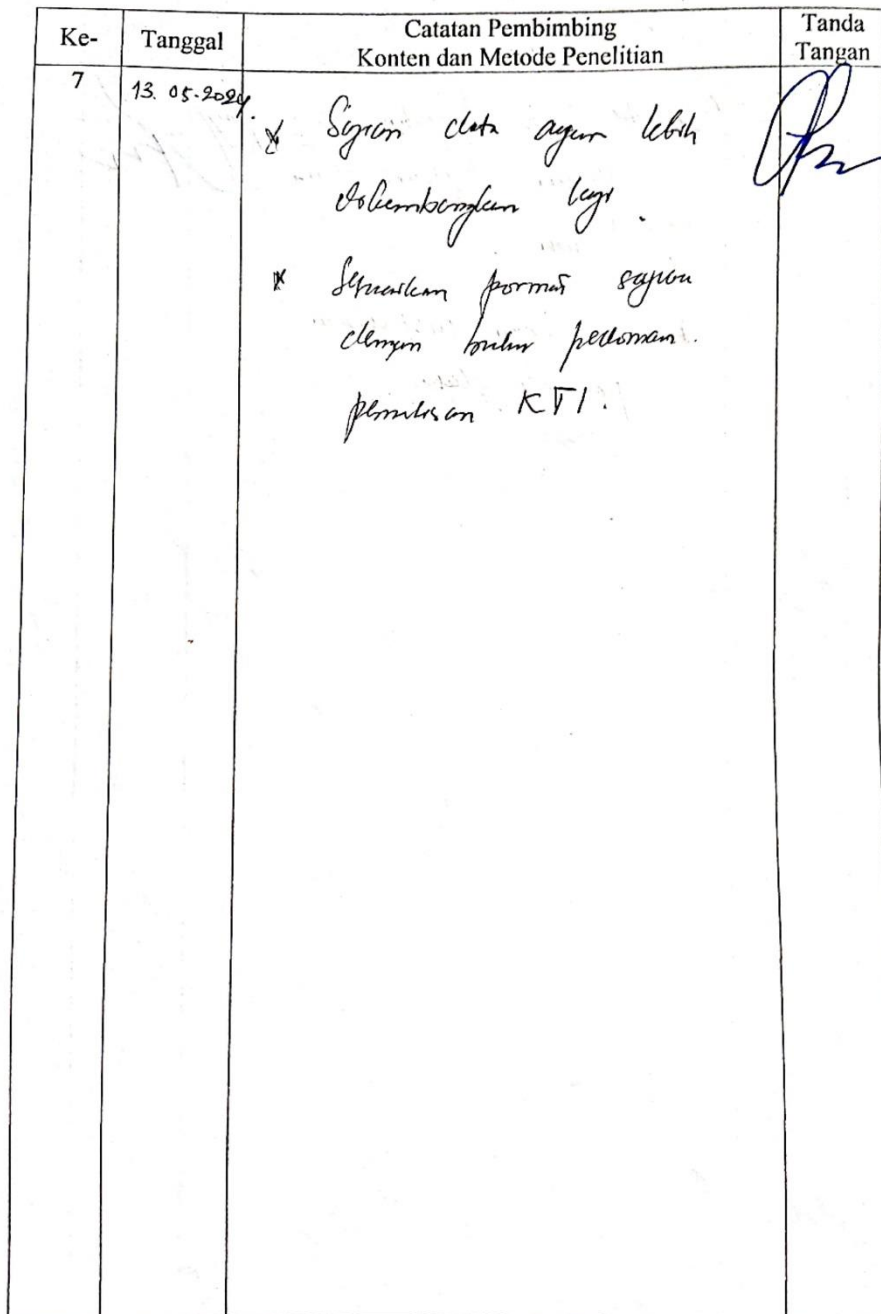 Ke-
Tanggal
Catatan Pembimbing
Konten dan Metode Penelitian
Tanda
Tangan
7
13. 05-2024.
* Sajian data agar lebih
dikembangkan lagi.
* Sesuaikan format sajian
dengan buku pedoman.
penulisan KTI.